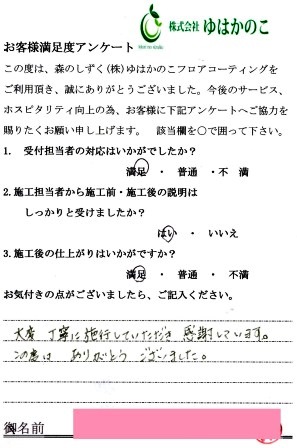 株式会社 ゆはかのこ
お客様満足度アンケート
この度は、森のしずく(株)ゆはかのこフロアコーティングを
ご利用頂き、誠にありがとうございました。今後のサービス、
ホスピタリティ向上の為、お客様に下記アンケートへご協力を
賜りたくお願い申し上げます。 該当欄を〇で囲って下さい。
1. 受付担当者の対応はいかがでしたか?
満足 ・ 普通 ・不 満
2.施工担当者から施工前・施工後の説明は
しっかりと受けましたか?
はい ・ いいえ
3.施工後の仕上がりはいかがですか?
満足 ・ 普通 ・ 不満
お気付きの点がございましたら、ご記入ください。
大変 丁寧に施行していただき 感謝しています。
この度は ありがとう ございました。
御名前